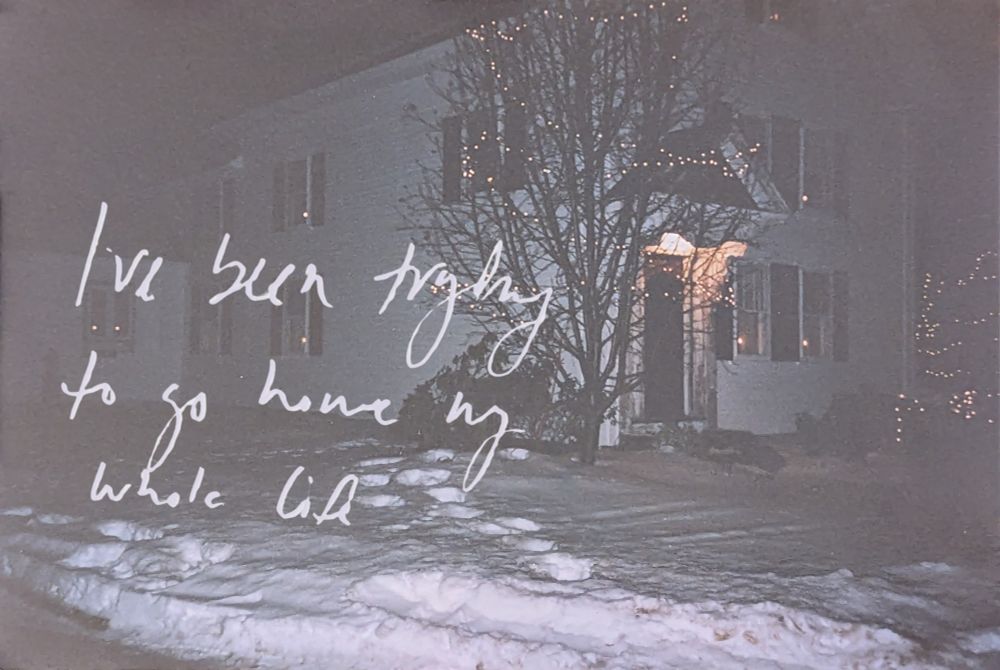 I've been trying
to go home my
whole life